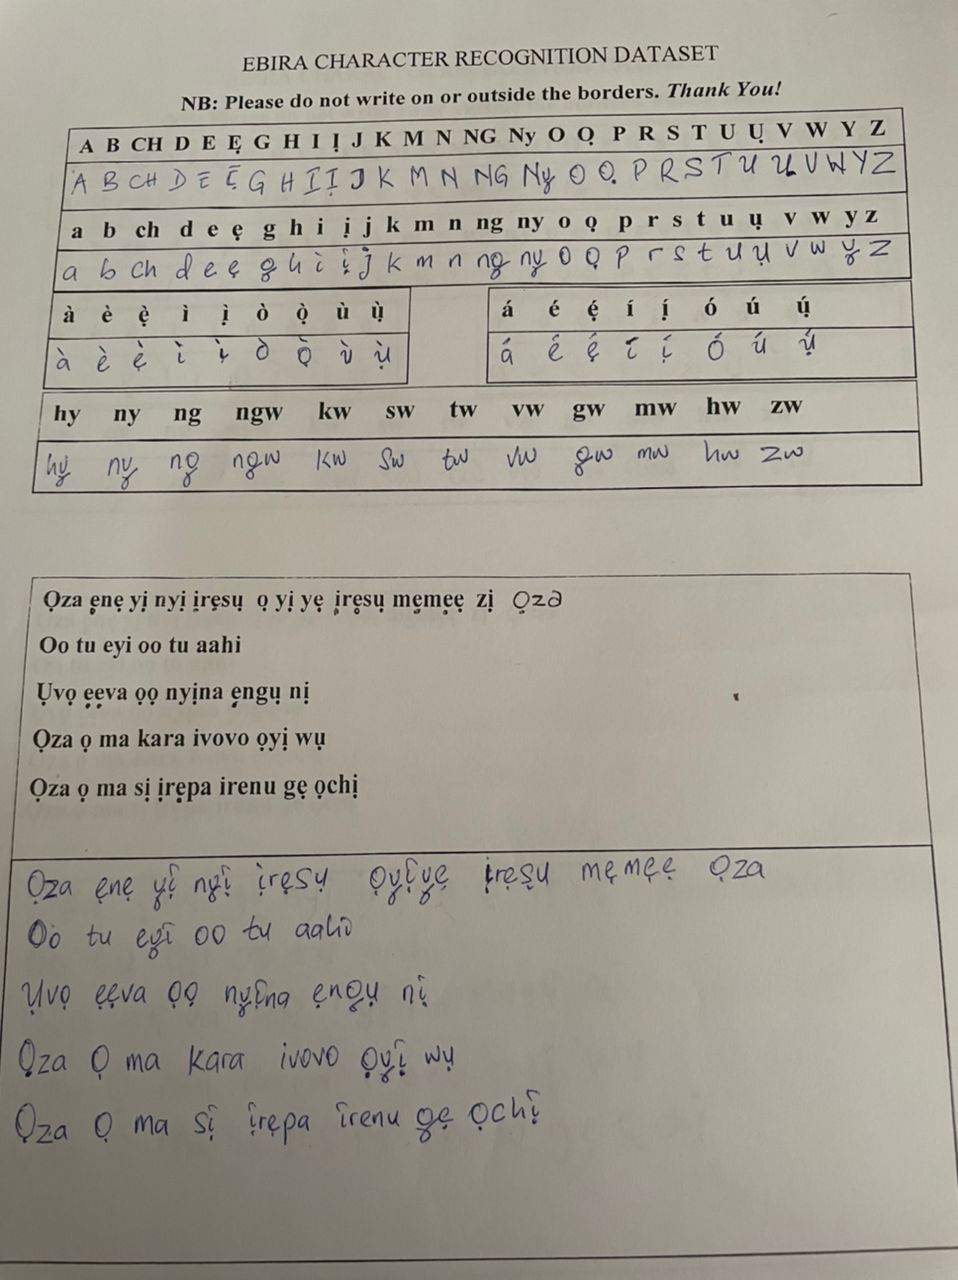 EBIRA CHARACTER RECOGNITION DATASET
NB: Please do not write on or outside the borders. Thank You!
A B CH D E Ẹ G H I Ị J K M N NG Ny O Ọ P R S T U Ụ V W Y Z
A B CH D E Ẹ G H I Ị J K M N NG Ny O Ọ P R S T U Ụ V W Y Z
a b ch d e ẹ g h i ị j k m n ng ny o ọ p r s t u ụ v w y z
a b ch d e ẹ g h i ị j k m n ng ny o ọ p r s t u ụ v w y z
à è ẹ̀ ì ị̀ ò ọ̀ ù ụ̀
á é ẹ́ í ị́ ó ú ụ́
à è ẹ̀ ì ị̀ ò ọ̀ ù ụ̀
á é ẹ́ í ị́ ó ú ụ́
hy ny ng ngw kw sw tw vw gw mw hw zw
hy ny ng ngw kw sw tw vw gw mw hw zw
Ọza ẹnẹ yị nyị ịrẹsụ ọ yị yẹ ịrẹsụ mẹmẹẹ zị Ọza
Oo tu eyi oo tu aahi
Ụvọ ẹẹva ọọ nyịna ẹngụ nị
Ọza ọ ma kara ivovo ọyị wụ
Ọza ọ ma sị ịrẹpa irenu gẹ ọchị
Ọza ẹnẹ yị nyị ịrẹsụ ọyịyẹ ịrẹsụ mẹmẹẹ Ọza
Oo tu eyi oo tu aahi
Ụvọ ẹẹva ọọ nyịna ẹngụ nị
Ọza Ọ ma kara ivovo ọyị wụ
Ọza Ọ ma sị ịrẹpa irenu gẹ ọchị